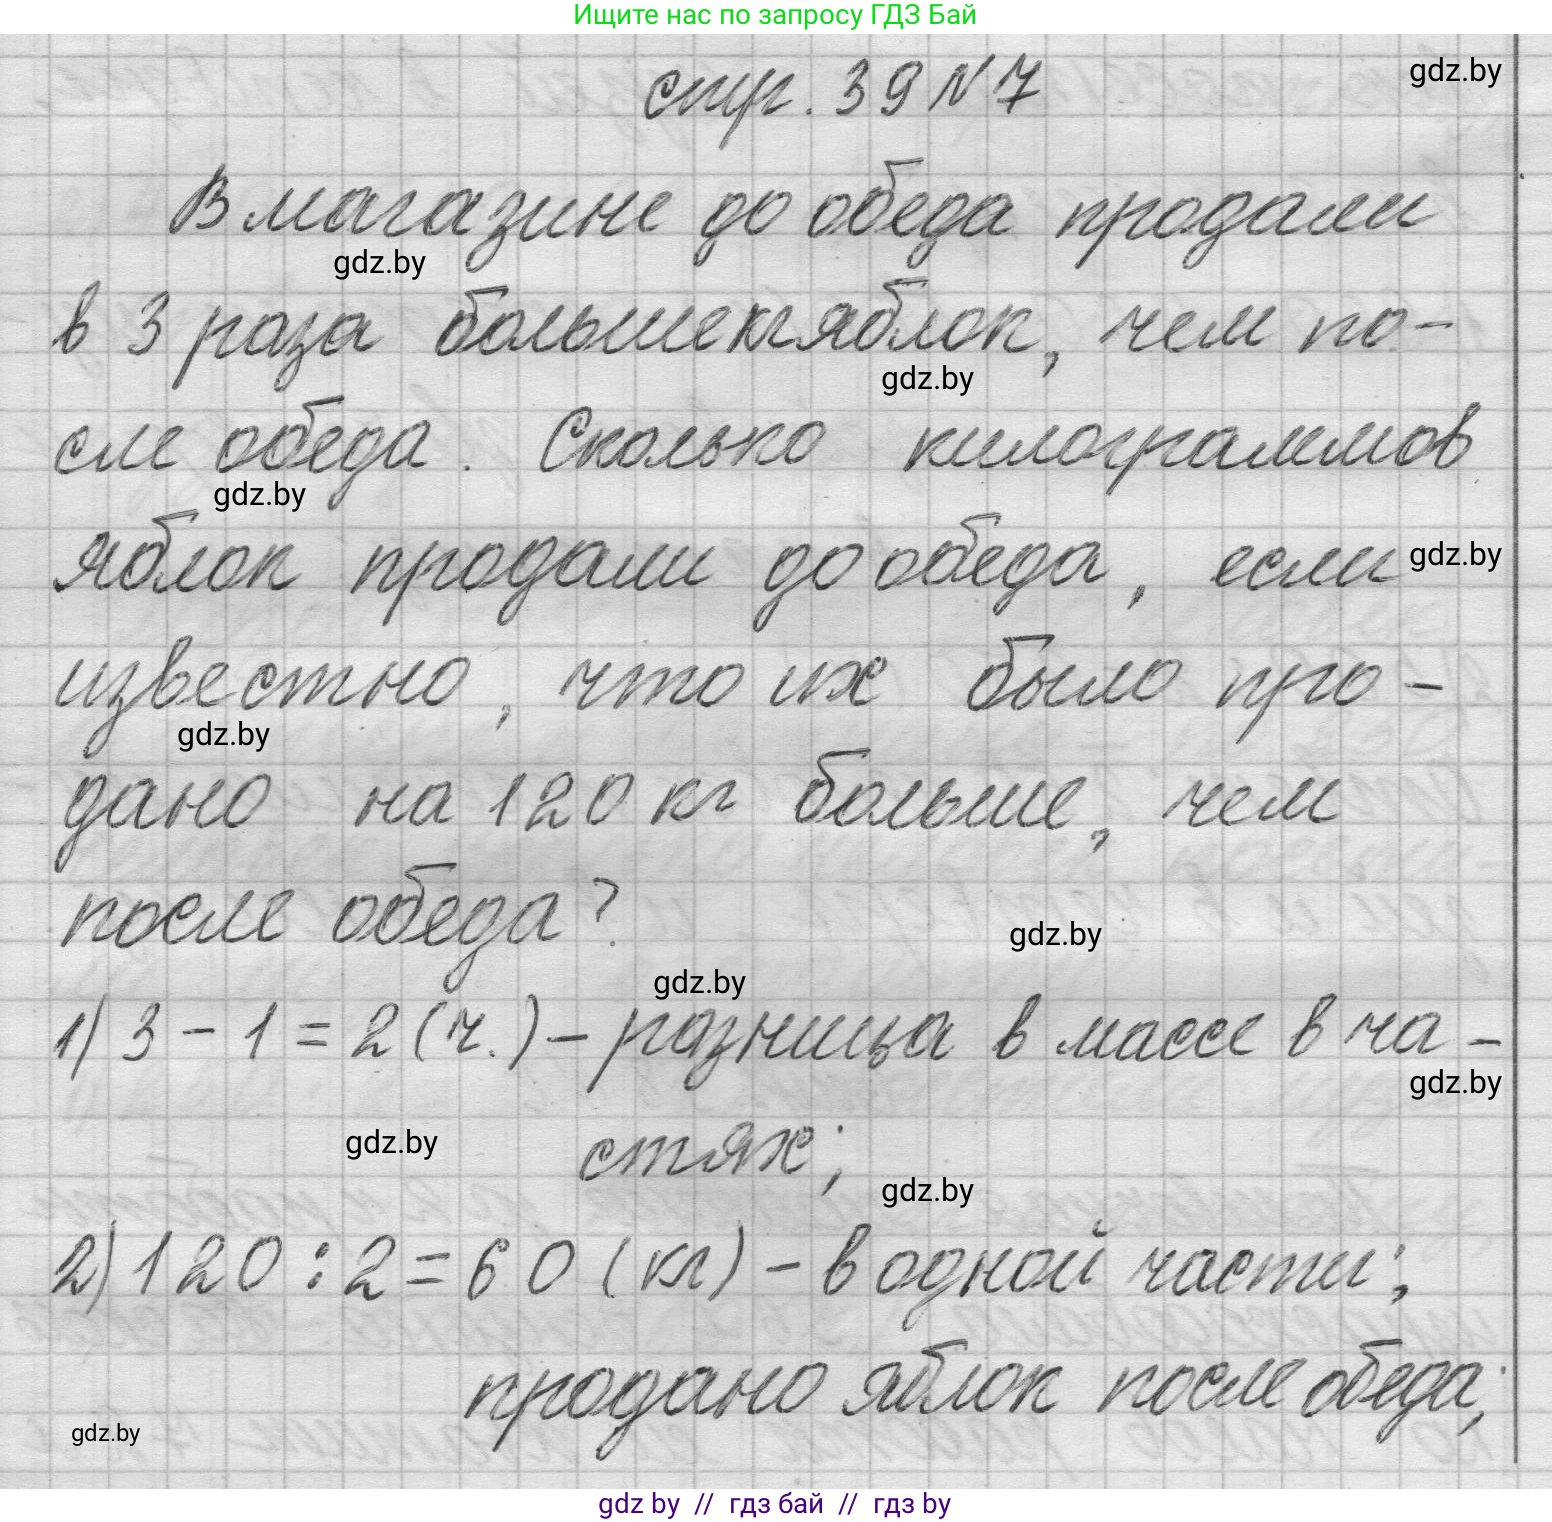 Ищите нас по запросу ГДЗ Бай
стр. 39 N 7
gdz.by
В магазине до обеда продали
gdz.by
в 3 раза больше кг яблок, чем по-
gdz.by
сле обеда. Сколько килограммов
gdz.by
яблок продали до обеда, если
gdz.by
известно, что их было про-
gdz.by
дано на 120 кг больше, чем
после обеда?
gdz.by
gdz.by
1) 3 - 1 = 2 (ч.) - разница в массе в ча-
gdz.by
gdz.by
стях;
gdz.by
2) 120 : 2 = 60 (кг) - в одной части;
продано яблок после обеда;
gdz.by
gdz by // гдз бай // гдз by